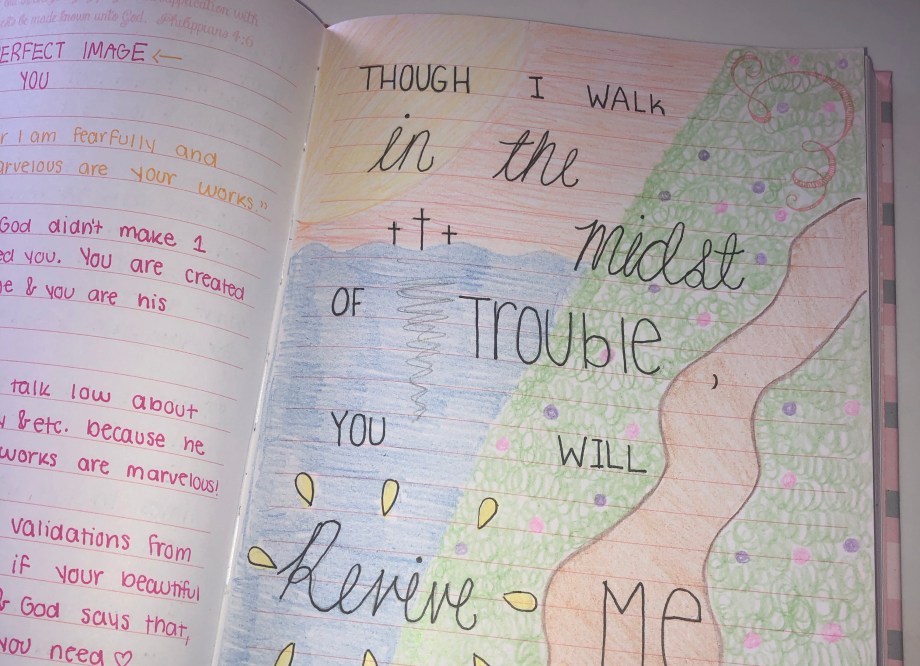 application with
be made known unto God. Philippians 4:6
ERFECT IMAGE ←
YOU
r I am fearfully and
arvelous are your works."
God didn't make 1
ed you. You are created
e & you are his
talk low about
& etc. because he
works are marvelous!
validations from
if your beautiful
& God says that,
you need ♡
THOUGH I WALK
in the
midst
OF TROUblE,
YOU WILL
Revive ME